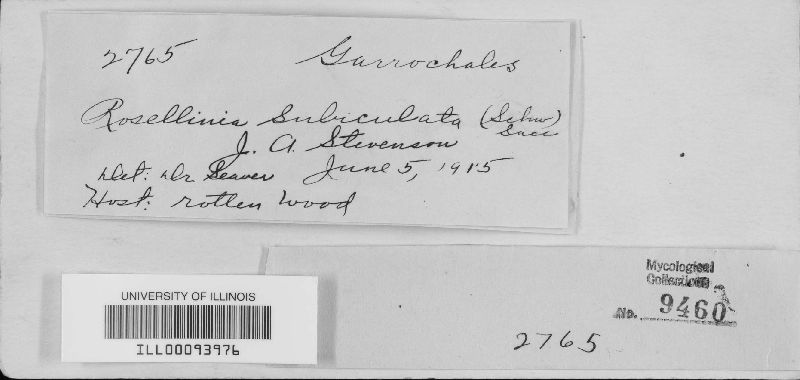 2765 Garrochales
Rosellinia subiculata (Schw)
Sacc
J. A. Stevenson
Det: Dr Seaver June 5, 1915
Host: rotten wood
Mycological
Collection
No. 9460
2765
UNIVERSITY OF ILLINOIS
ILL00093976